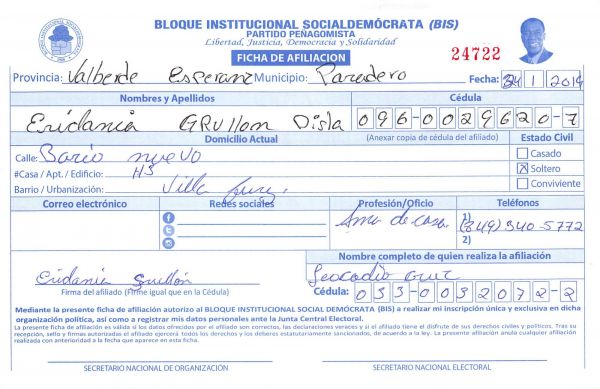 BLOQUE INSTITUCIONAL SOCIALDEMÓCRATA (BIS)
PARTIDO PEÑAGOMISTA
Libertad, Justicia, Democracia y Solidaridad
FICHA DE AFILIACIÓN
24722
Provincia: Valberde Esperanz Municipio: Paradero Fecha: 24 1 2019
Nombres y Apellidos Cédula
Eridania GRullon Disla 096-0029620-7
Domicilio Actual (Anexar copia de cédula del afiliado) Estado Civil
Calle: Bario nuevo Casado
#Casa / Apt. / Edificio: H5 Soltero
Barrio / Urbanización: Villa Conviviente
Correo electrónico Redes sociales Profesión/Oficio Teléfonos
Ama de casa 1) (849) 340-5772
2)
Nombre completo de quien realiza la afiliación
Eridania Grullón Leocadio Cruz
Firma del afiliado (Firme igual que en la Cédula) Cédula: 033-0032072-2
Mediante la presente ficha de afiliación autorizo al BLOQUE INSTITUCIONAL SOCIAL DEMÓCRATA (BIS) a realizar mi inscripción única y exclusiva en dicha
organización política, así como a registrar mis datos personales ante la Junta Central Electoral.
La presente ficha de afiliación es válida si los datos ofrecidos por el afiliado son correctos, las declaraciones veraces y si el afiliado tiene el disfrute de sus derechos civiles y políticos. Tras su
recepción, sello y firmas autorizadas el afiliado ejercerá todos los derechos y los deberes estatutariamente sancionados, de acuerdo a la ley. La presente afiliación anula cualquier afiliación
realizada con anterioridad a la fecha que aparece en esta ficha.
SECRETARIO NACIONAL DE ORGANIZACIÓN SECRETARIO NACIONAL ELECTORAL